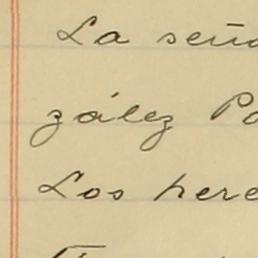 La seño
zález Po
Los here